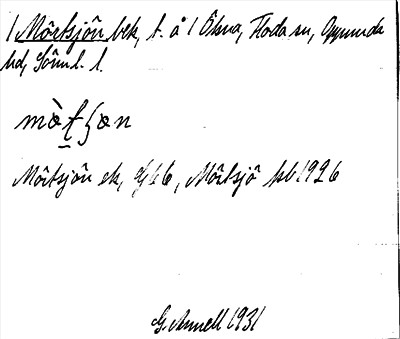 1 Mörtsjön bek, t. å 1 Ökna, Floda sn, Oppunda
hd, Söml. l.
mò̀ʈʂøn
Mörtsjön ek, Gj 66, Mörtsjö kb 1926
G. Annell 1931